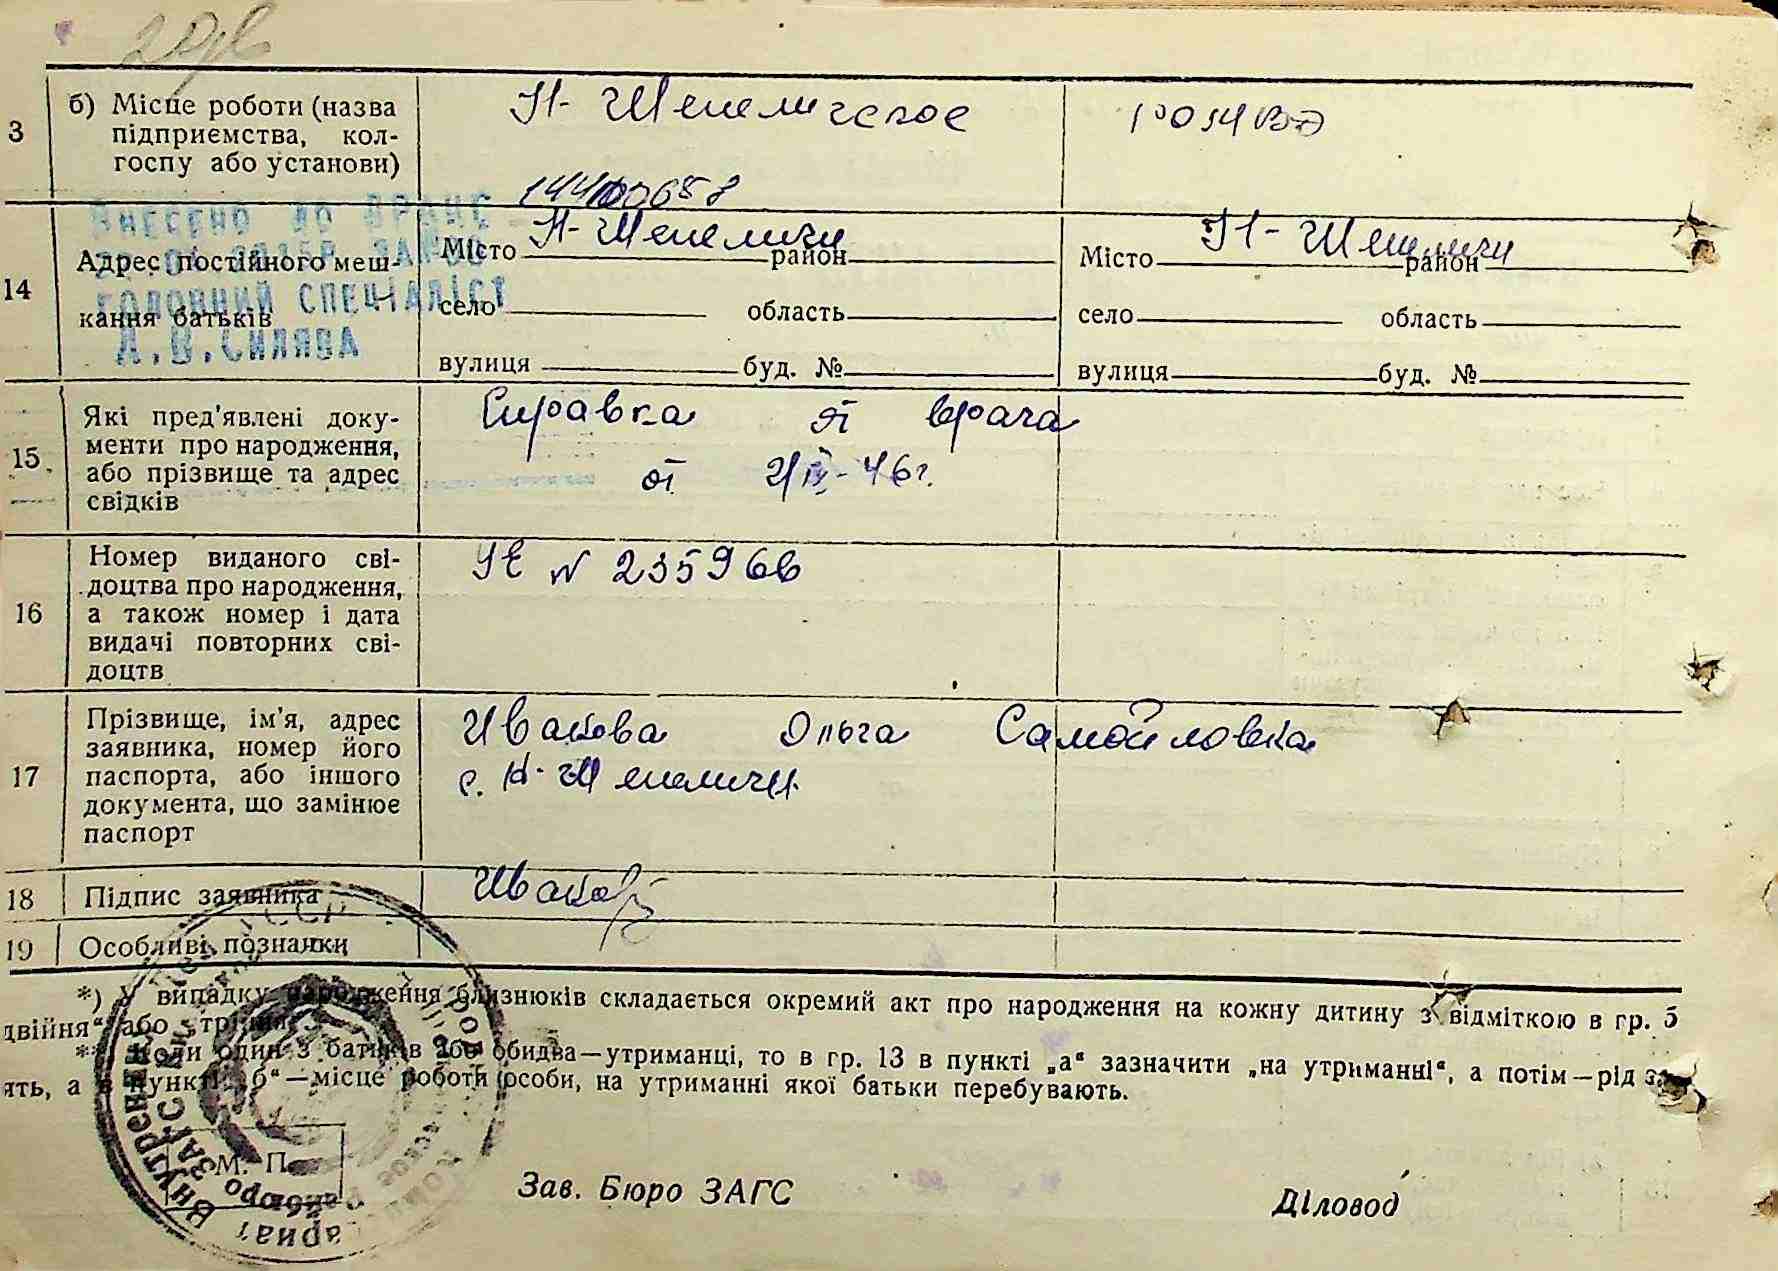 3
б) Місце роботи (назва
підприємства, кол-
госпу або установи)
Н-Шепеличское
14400658
ВНЕСЕНО ДО ДРАЦС
ГОЛОВНИЙ СПЕЦІАЛІСТ
А.В.СИЛЯВА
14
Адрес постійного меш-
кання батьків
Місто Н-Шепеличи район
село область
вулиця буд. №
Місто Н-Шепеличи район
село область
вулиця буд. №
15
Які пред'явлені доку-
менти про народження,
або прізвище та адрес
свідків
Справка от врача
от 2/IV-46г.
16
Номер виданого сві-
доцтва про народження,
а також номер і дата
видачі повторних сві-
доцтв
УЕ N 235966
17
Прізвище, ім'я, адрес
заявника, номер його
паспорта, або іншого
документа, що замінює
паспорт
Ивакова Ольга Самойловка
с. Н-Шепеличи.
18
Підпис заявника
Иваков
19
Особливі познанки
*) У випадку народження близнюків складається окремий акт про народження на кожну дитину з відміткою в гр. 5
двійня“ або „трійня“
** Коли один з батьків або обидва—утриманці, то в гр. 13 в пункті „а“ зазначити „на утриманні“, а потім—рід за
ять, а в пункті „б“—місце роботи особи, на утриманні якої батьки перебувають.
М. П.
Зав. Бюро ЗАГС
Діловод